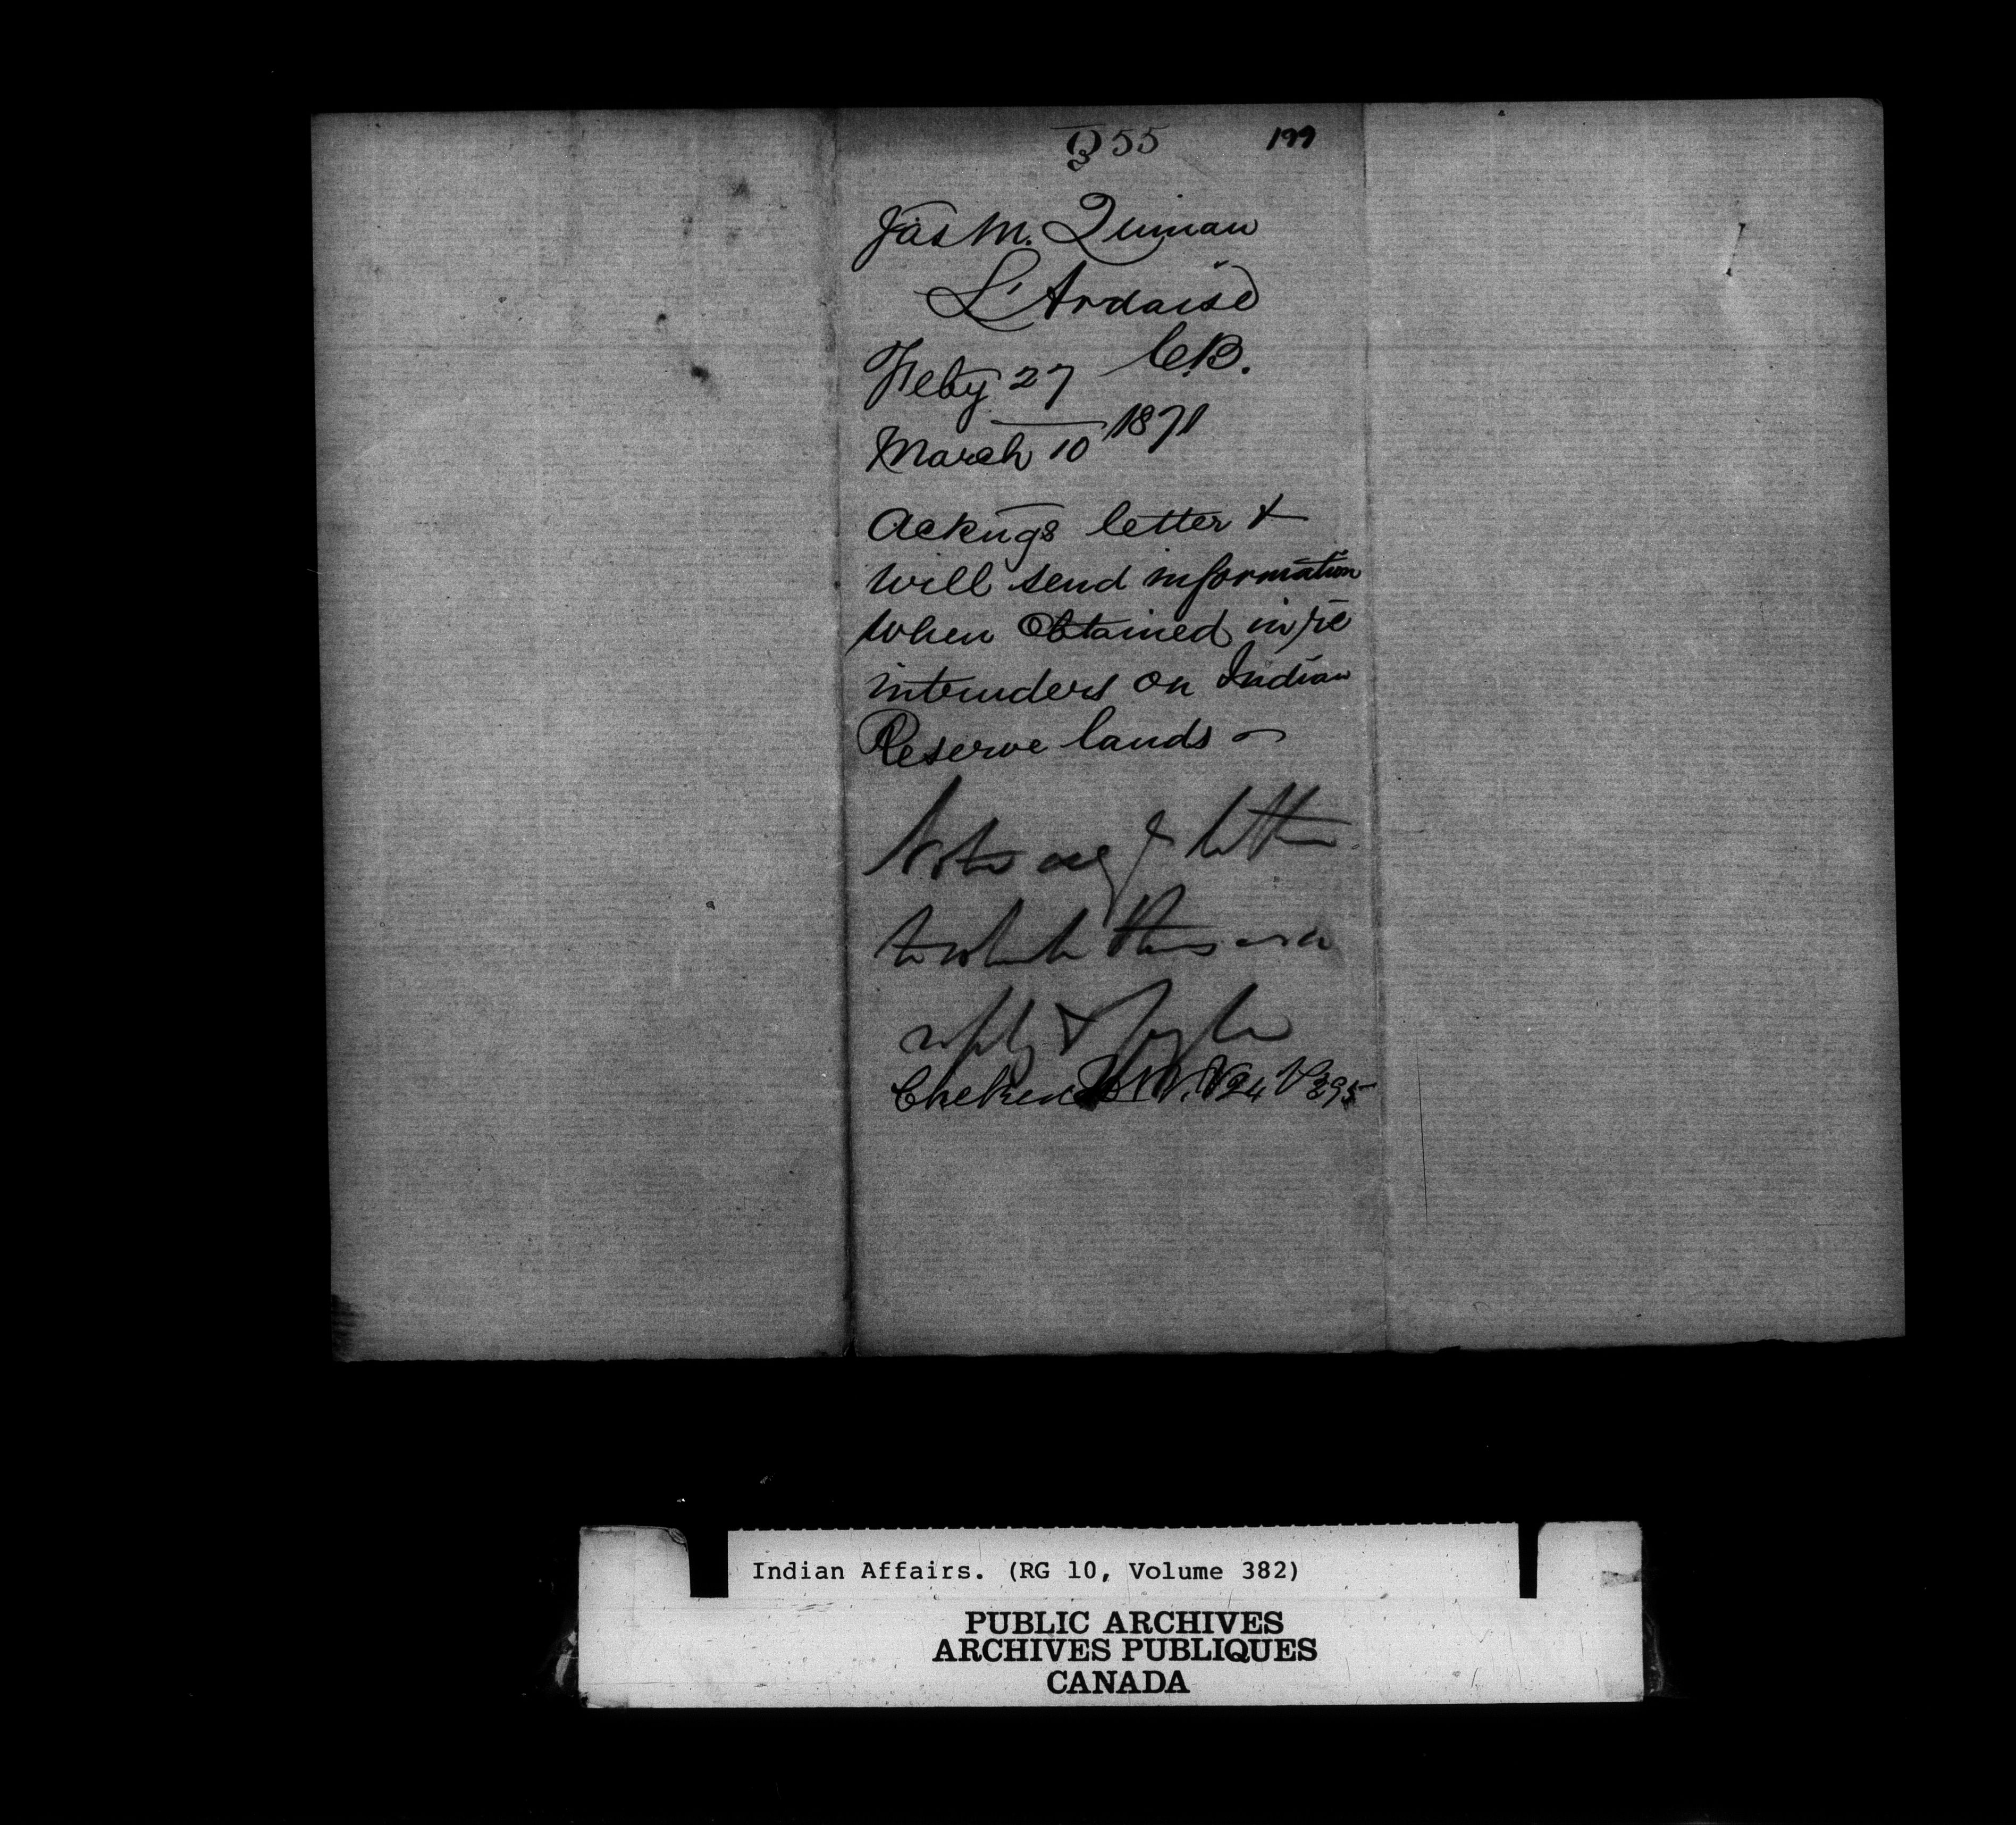 Q 55 199
Jas M. Quinan
L'Ardoise
C.B.
Feby 27
March 10 1871
Ackngs letter &
will send information
when Obtained in/re
intruders on Indian
Reserve lands
Note of letter
to which this is a
reply &
Indian Affairs. (RG 10, Volume 382)
PUBLIC ARCHIVES
ARCHIVES PUBLIQUES
CANADA